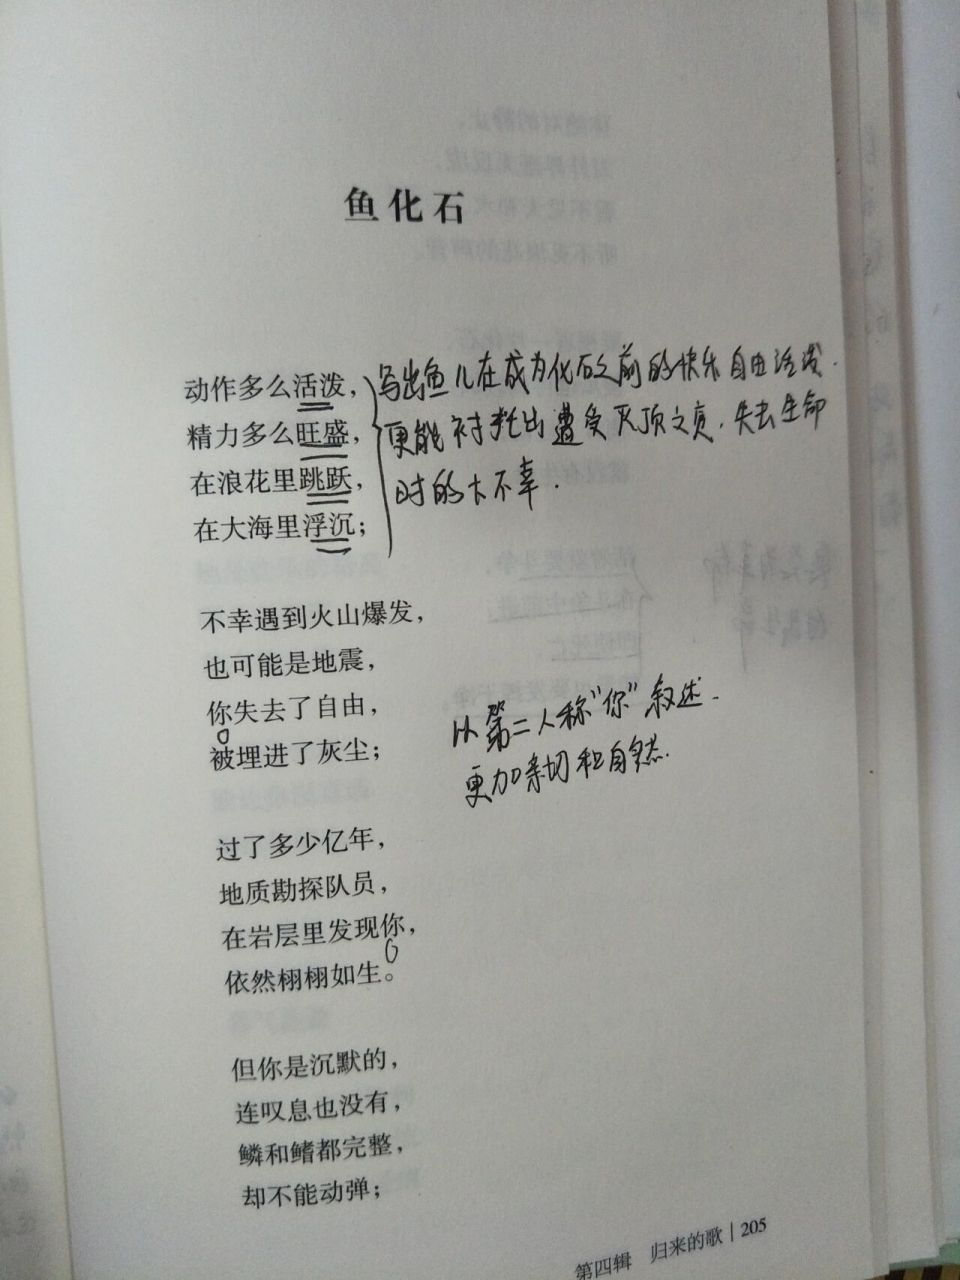 鱼化石
动作多么活泼，
精力多么旺盛，
在浪花里跳跃，
在大海里浮沉；
写出鱼儿在成为化石之前的快乐自由活泼.
更能衬托出遭受灭顶之灾.失去生命
时的大不幸.
不幸遇到火山爆发，
也可能是地震，
你失去了自由，
被埋进了灰尘；
以第二人称“你”叙述.
更加亲切和自然.
过了多少亿年，
地质勘探队员，
在岩层里发现你，
依然栩栩如生。
但你是沉默的，
连叹息也没有，
鳞和鳍都完整，
却不能动弹；
第四辑 归来的歌 | 205